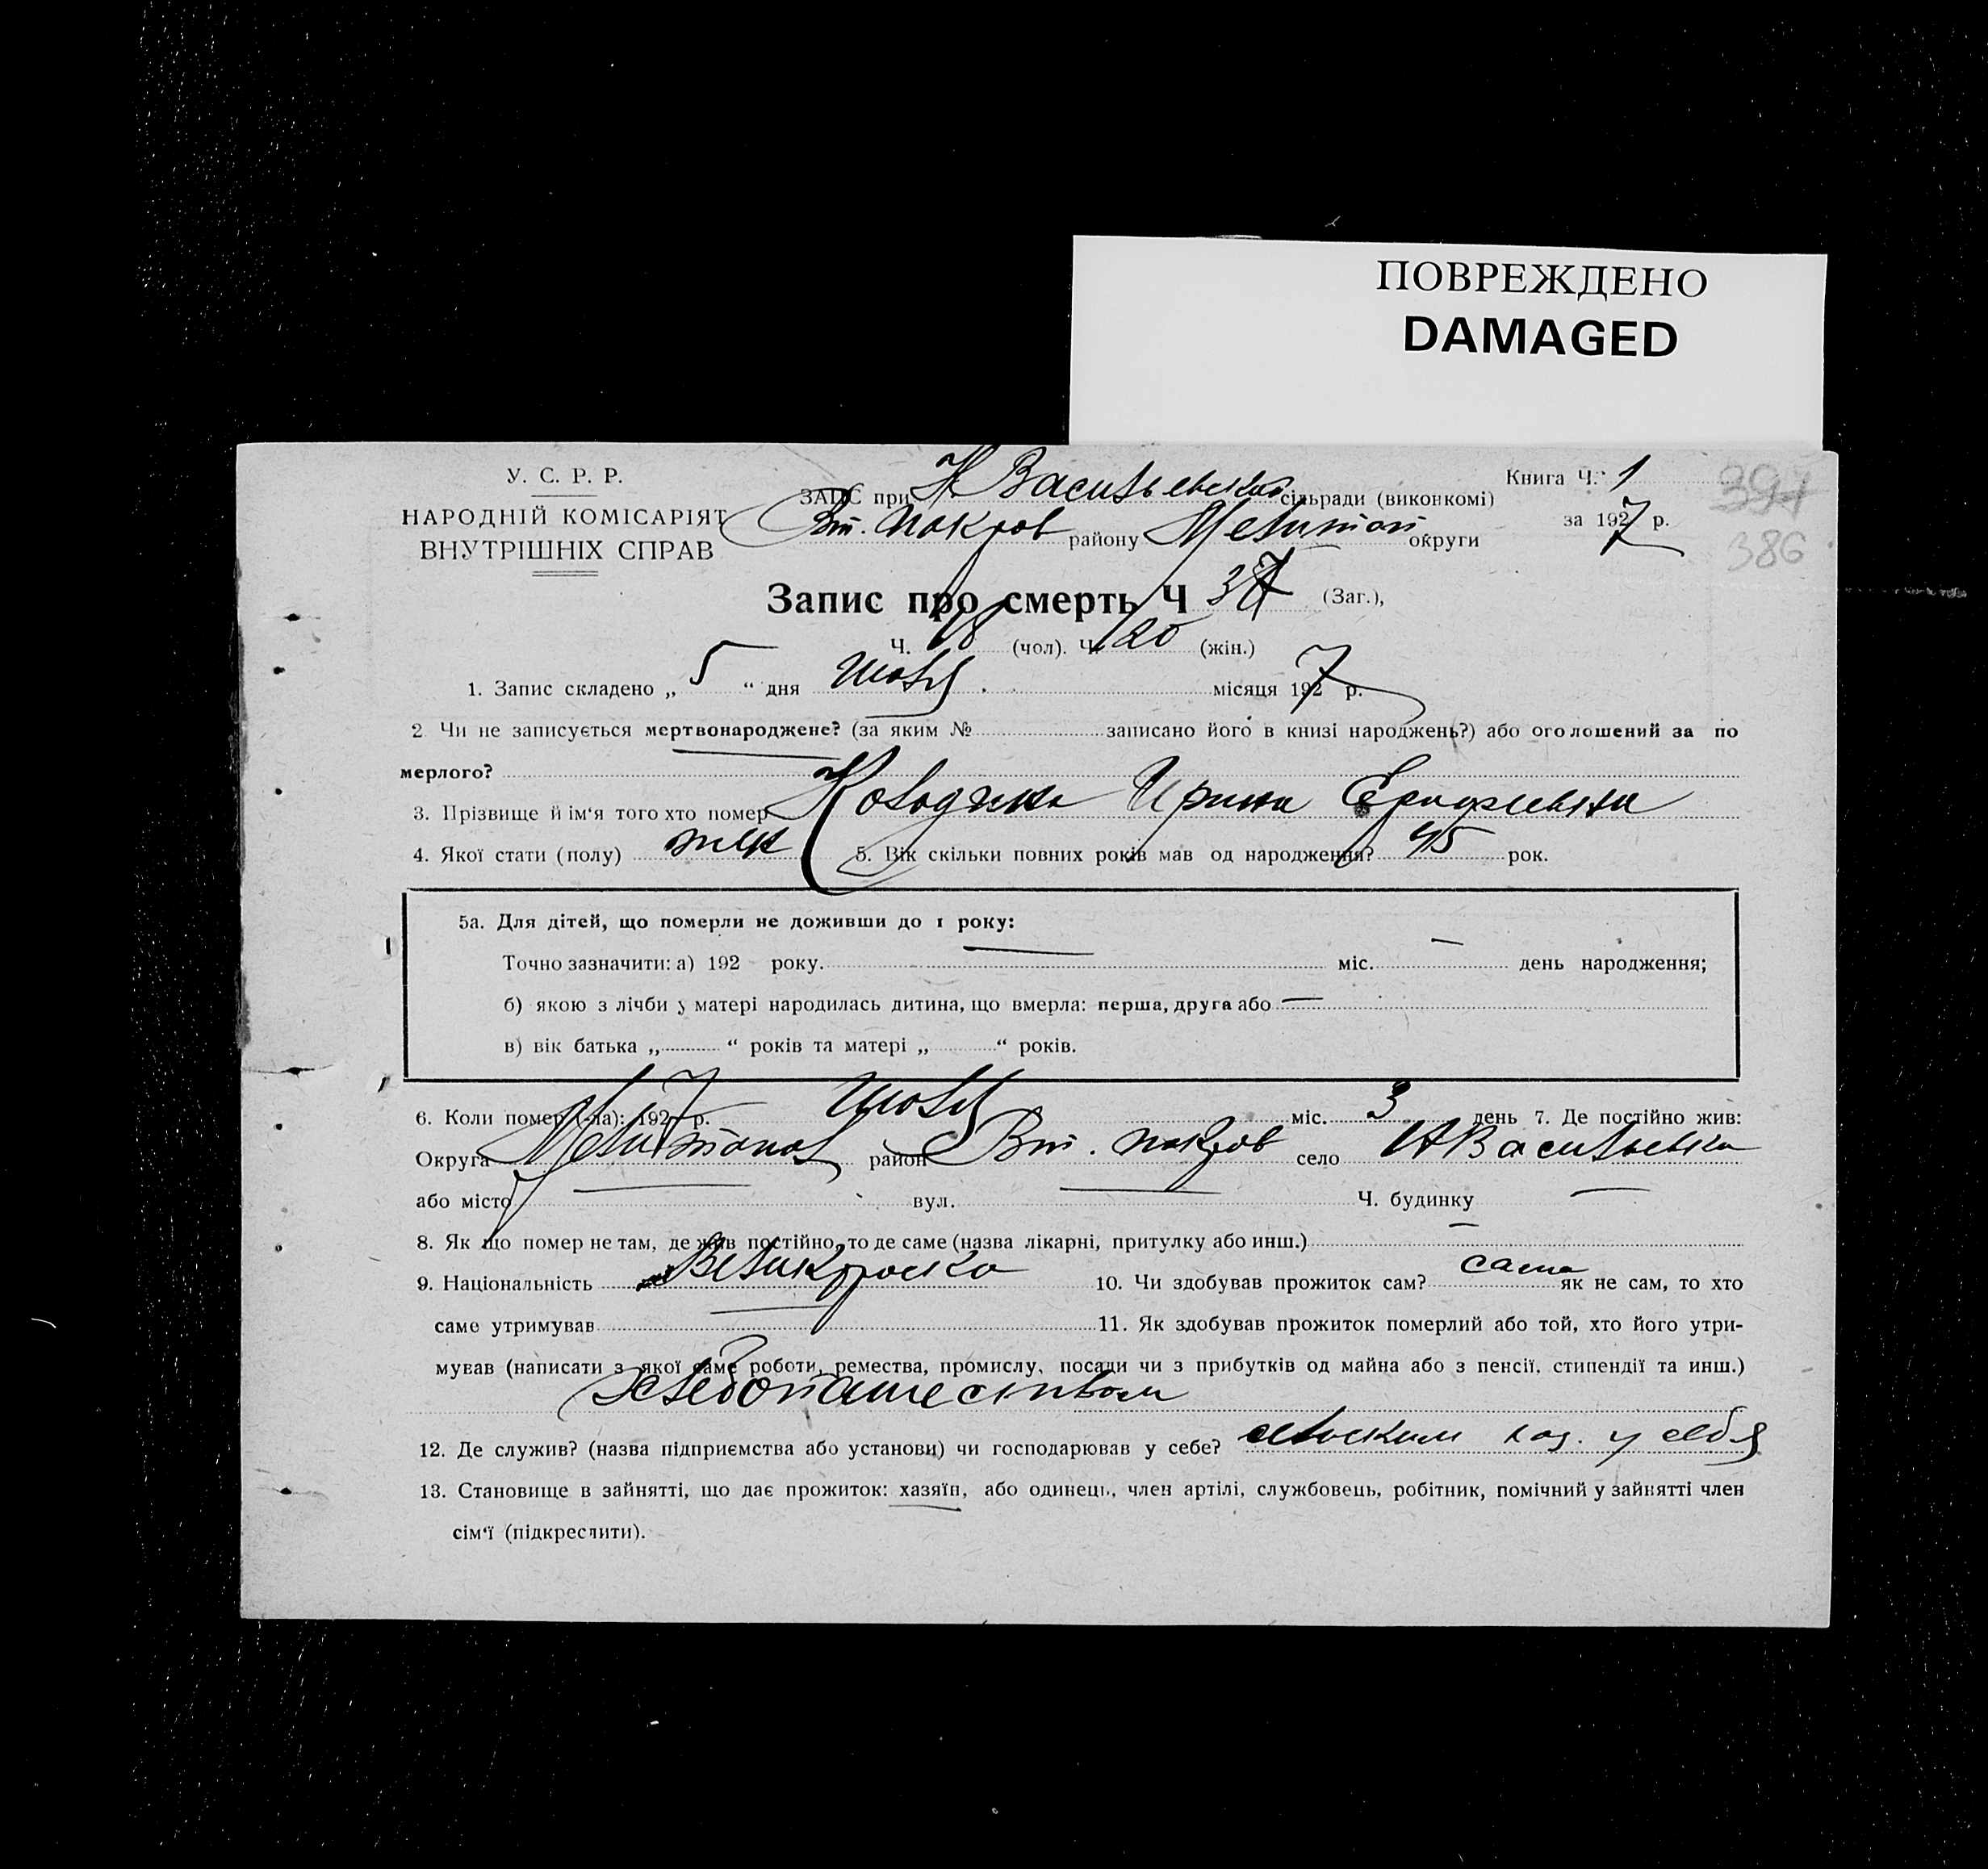 ПОВРЕЖДЕНО
DAMAGED
У. С. Р. Р.
НАРОДНІЙ КОМІСАРІЯТ
ВНУТРІШНІХ СПРАВ
Книга Ч. 1
за 1927 р.
394
386
ЗАПС при Н Васильевской сільради (виконкомі)
Вт. Покров району Мелитоп округи
Запис про смерть Ч 37 (Заг.),
Ч. 18 (чол). Ч. 20 (жін.)
1. Запис складено „ 5 “ дня Июля місяця 1927 р.
2 Чи не записується мертвонароджене? (за яким № записано його в книзі народжень?) або оголошений за по
мерлого?
3. Прізвище й ім‘я того хто помер Ирина
4. Якої стати (полу) жен 5. Вік скільки повних років мав од народження? 45 рок.
5а. Для дітей, що померли не доживши до 1 року:
Точно зазначити: а) 192 року. міс. день народження;
б) якою з лічби у матері народилась дитина, що вмерла: перша, друга або —
в) вік батька „ “ років та матері „ “ років.
6. Коли помер (-ла): 1927 р. Июля міс. 3 день 7. Де постійно жив:
Округа Мелитопол район Вт. Покров село Н Васильевка
або місто — вул. — Ч. будинку —
8. Як що помер не там, де жив постійно, то де саме (назва лікарні, притулку або инш.) —
9. Національність Великоросска 10. Чи здобував прожиток сам? сама як не сам, то хто
саме утримував — 11. Як здобував прожиток померлий або той, хто його утри-
мував (написати з якої саме роботи, ремества, промислу, посади чи з прибутків од майна або з пенсії, стипендії та инш.)
Хлебопашеством
12. Де служив? (назва підприємства або установи) чи господарював у себе? сельским хоз. у себя
13. Становище в зайнятті, що дає прожиток: хазяїн, або одинець, член артілі, службовець, робітник, помічний у зайнятті член
сім‘ї (підкреслити).